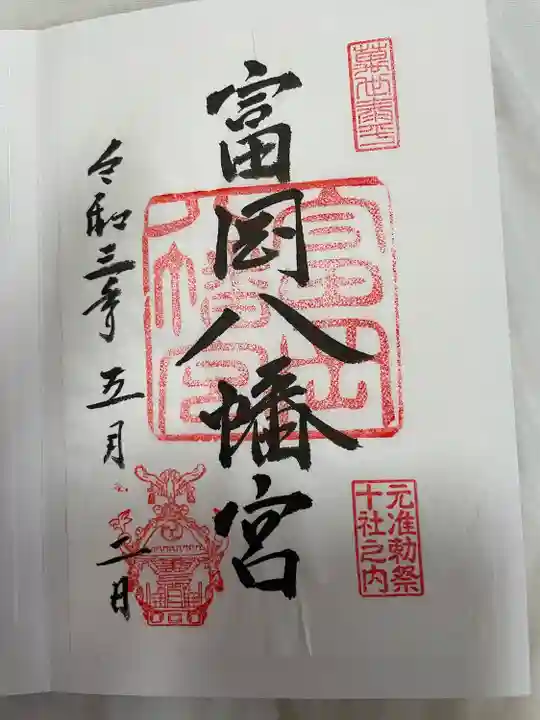 元准勅祭
十社之内
富岡八幡宮
富岡
八幡宮
令和三年五月二日